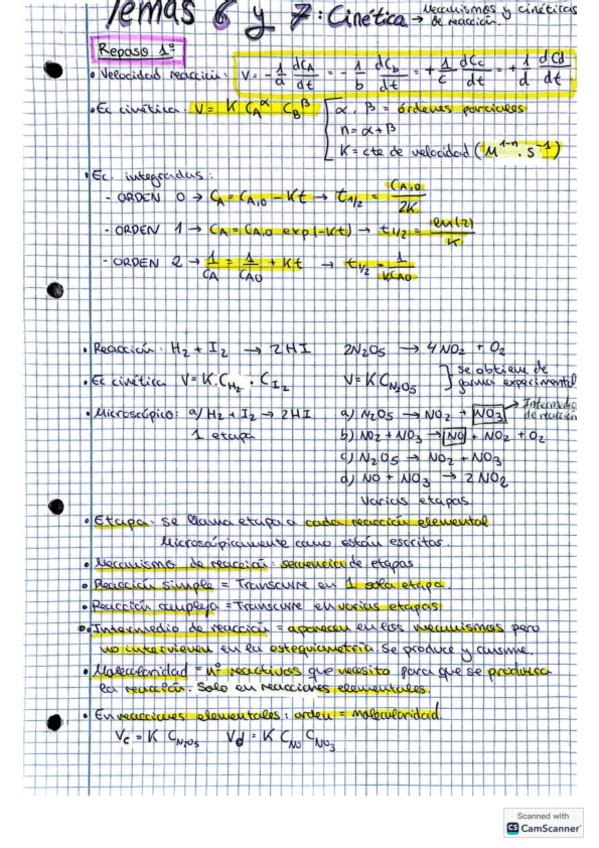 Temas 6 y 7: Cinética → Mecanismos y cinéticas de reacción.
Repaso 1º
• Velocidad reacción: V = -1/a dCA/dt = -1/b dCb/dt = +1/c dCc/dt = +1/d dCd/dt
• Ec cinética: V = K CA^α CB^β [ α, β = órdenes parciales
n = α + β
K = cte de velocidad (M^1-n · s^-1)
• Ec. integradas:
- ORDEN 0 → CA = CA,0 - Kt → t1/2 = CA,0/2K
- ORDEN 1 → CA = CA,0 exp(-Kt) → t1/2 = ln(2)/K
- ORDEN 2 → 1/CA = 1/CA0 + Kt → t1/2 = 1/KCA0
• Reacción: H2 + I2 → 2HI 2N2O5 → 4NO2 + O2
• Ec cinética V = K·CH2 · CI2 V = K CN2O5 } se obtiene de forma experimental
• Microscópico: a) H2 + I2 → 2HI a) N2O5 → NO2 + NO3 → Intermedio de reacción
1 etapa b) NO2 + NO3 → NO + NO2 + O2
c) N2O5 → NO2 + NO3
d) NO + NO3 → 2NO2
Varias etapas
• Etapa: se llama etapa a cada reacción elemental
Microscópicamente como están escritas.
• Mecanismo de reacción: secuencia de etapas
• Reacción simple = Transcurre en 1 sola etapa.
• Reacción compleja = Transcurre en varias etapas
• Intermedio de reacción = aparecen en los mecanismos pero
no intervienen en la estequiometría se produce y consume.
• Molecularidad = nº reactivos que necesito para que se produzca
la reacción. Solo en reacciones elementales.
• En reacciones elementales: orden = molecularidad
Vc = K CN2O5 Vd = K CNO CNO3
Scanned with
CS CamScanner